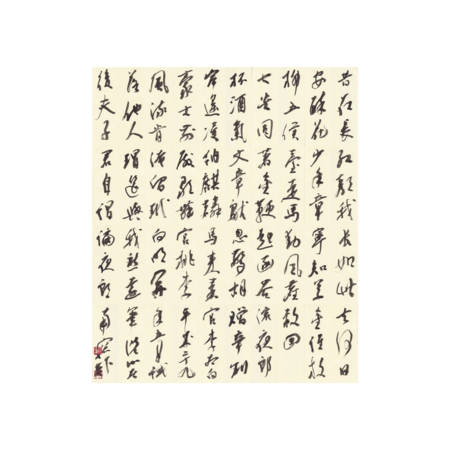 昔在長紅顏我長如此去何日
安醉花少年章寧知草金雞放
柳五侯臺走馬動風塵赦回
七貴同著金鞭起函谷流夜郎
杯酒氣文章獻忽驚胡贈辛判
岸遙凌納麒麟馬來秦官李太白
豪士前殿歌舞宮桃李
風流肯淹留玳向明開
落他人瑁筵與我愁遠
後夫子君自謂謫夜郎